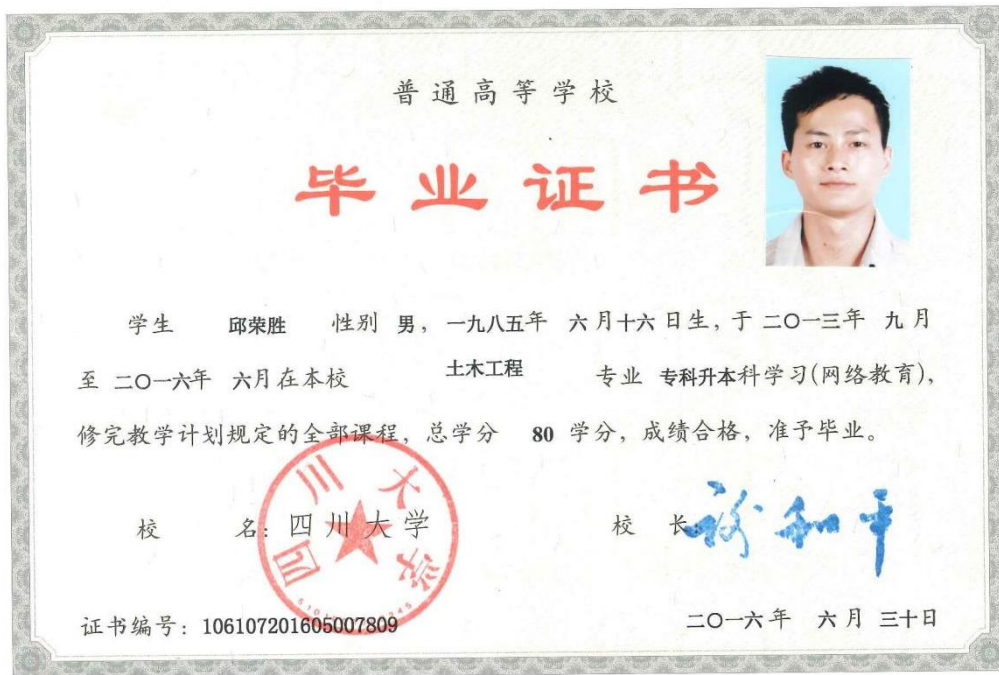 普通高等学校
毕业证书
学生 邱荣胜 性别 男，一九八五年 六月十六日生，于 二〇一三年 九月
至 二〇一六年 六月在本校 土木工程 专业 专科升本科学习(网络教育)，
修完教学计划规定的全部课程，总学分 80 学分，成绩合格，准予毕业。
校 名：四川大学 校 长：谢和平
四川大学
证书编号：106107201605007809 二〇一六年 六月 三十日